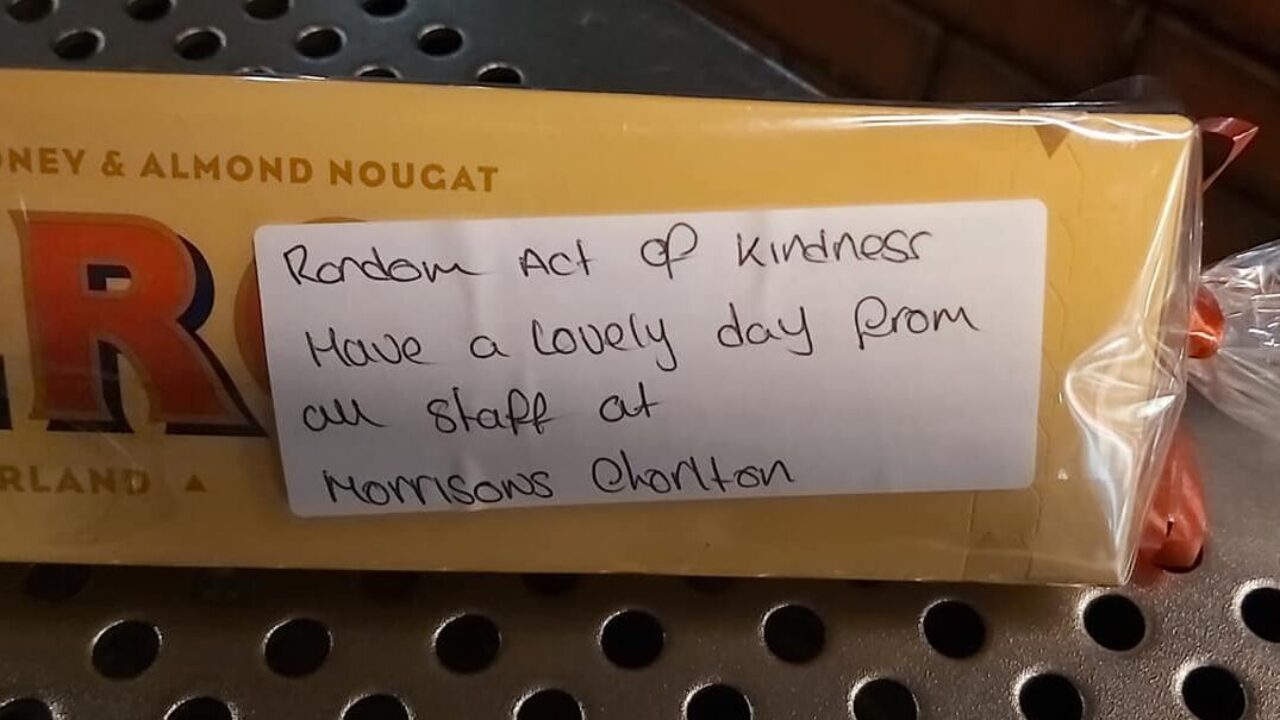 & ALMOND NOUGAT
Random Act of Kindness
Have a lovely day from
all staff at
Morrisons Chorlton